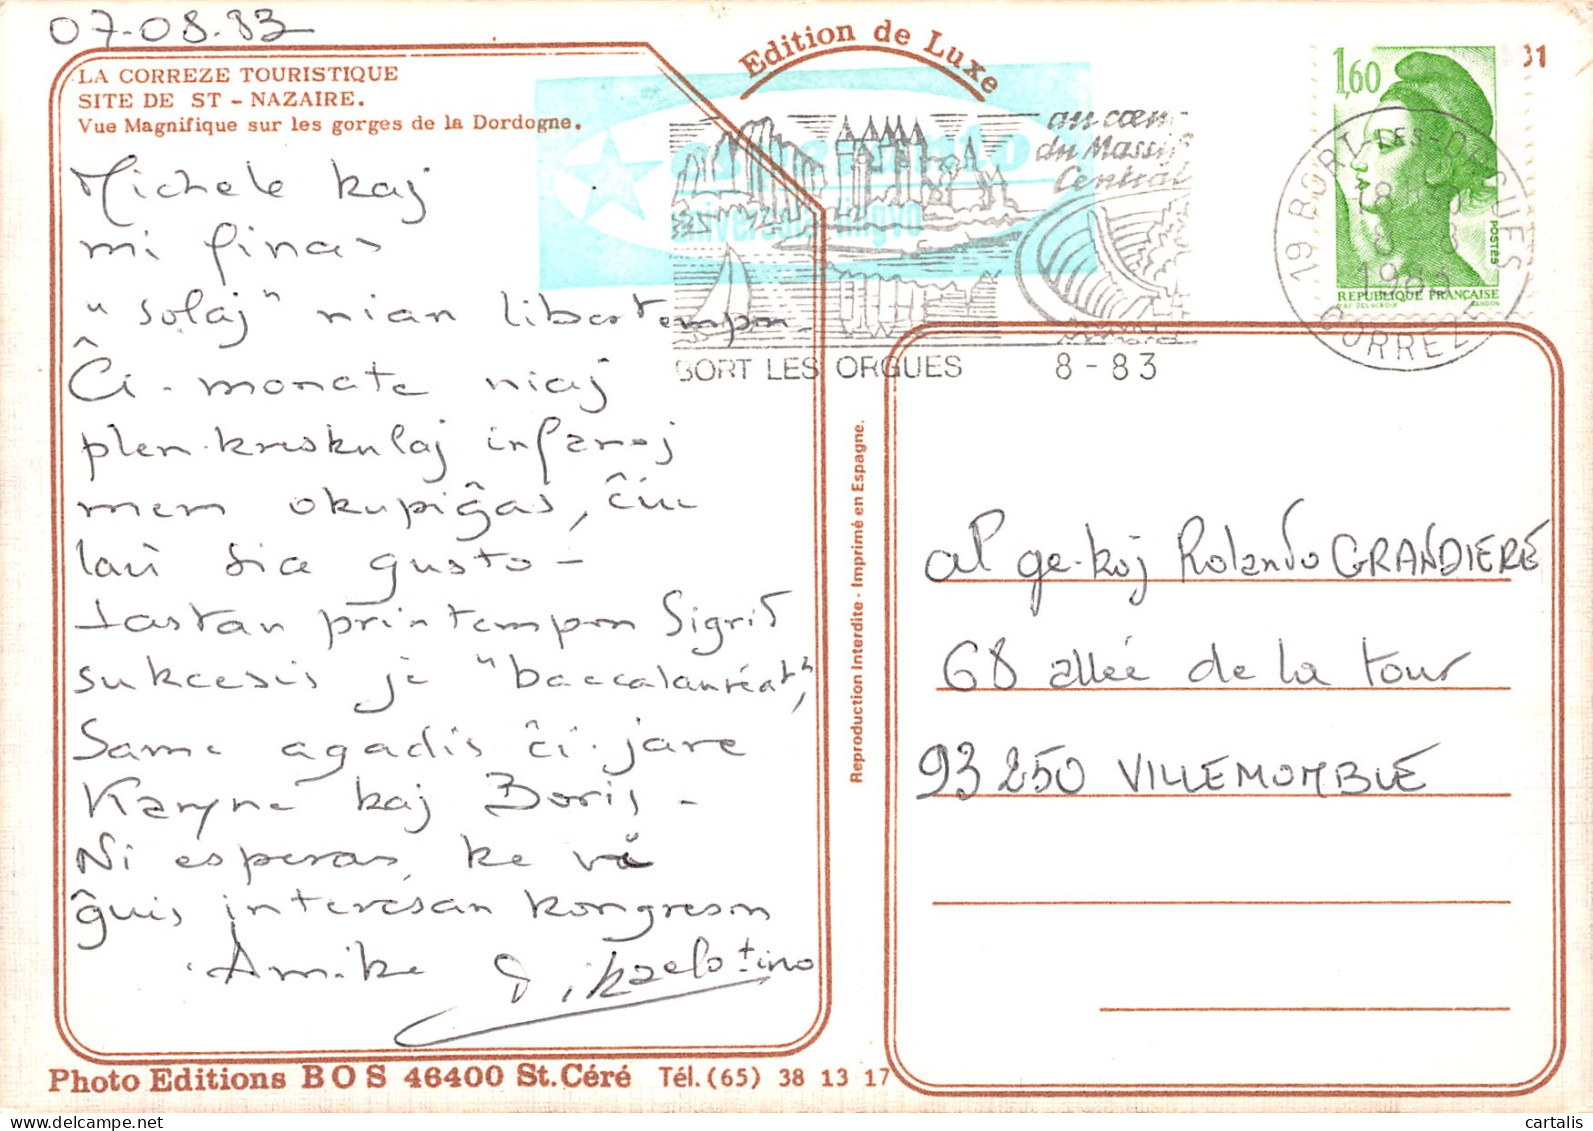 07-08.83
LA CORREZE TOURISTIQUE
SITE DE ST - NAZAIRE.
Vue Magnifique sur les gorges de la Dordogne.
Michele kaj
mi finas
"solaj" nian libertempon.
Ĉi-monate niaj
plenkreskulaj infanoj
mem okupiĝas, ĉiu
laŭ sia gusto -
Lastan printempon Sigrid
sukcesis je "baccalauréat",
Same agadis ĉi-jare
Karyne kaj Boris -
Ni esperas ke vi
ĝuis interesan kongreson
Amike
Edition de Luxe
esperanto
universala lingvo
au cœur
du Massif
Central
BORT LES ORGUES 8-83
1,60
POSTES
REPUBLIQUE FRANÇAISE
19 BORT-LES-ORGUES
18 H
8 - 8
1983
CORREZE
31
Reproduction Interdite - Imprimé en Espagne.
al ge-koj Rolando GRANDIERE
68 allée de la tour
93 250 VILLEMOMBLE
Photo Editions BOS 46400 St. Céré Tél. (65) 38 13 17
cartalis